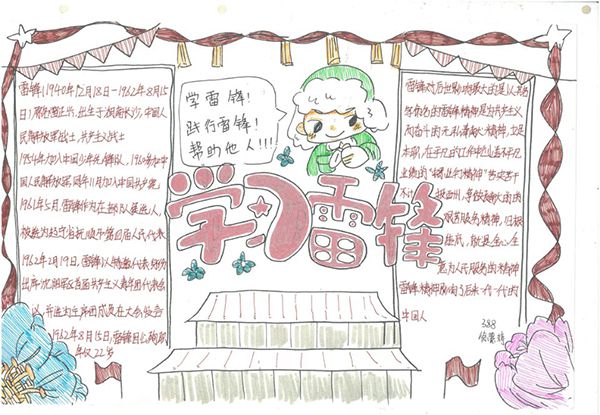 雷锋(1940年12月18日-1962年8月15
日)原名雷正兴,出生于湖南长沙,中国人
民解放军战士,共产主义战士
1954年加入中国少年先锋队,1960年参加中
国人民解放军,同年11月加入中国共产党,
1961年5月,雷锋作为所在部队候选人,
被选为辽宁省抚顺市第四届人民代表
1962年2月19日,雷锋以特邀代表身份
出席沈阳军区首届共产主义青年团代表会
议,并被选为主席团成员在大会发言
1962年8月15日,雷锋因公殉职
年仅22岁
学雷锋!
践行雷锋!
帮助他人!!!
学习雷锋
雷锋对后世影响最大的是以其名
字命名的雷锋精神是共产主义
而奋斗的无私奉献精神,立足
本职,在平凡的工作中创造不平凡
业绩的"螺丝钉精神"
苦服务精神,归根
结底,就是全心全
意为人民服务的精神
雷锋精神影响了后来一代一代的
中国人
388